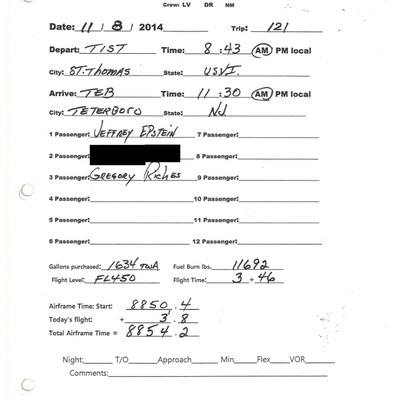 Crew: LV DR NM
Date: 11 / 8 / 2014 Trip: 121
Depart: TIST Time: 8 : 43 AM PM local
City: ST. Thomas State: USVI.
Arrive: TEB Time: 11 : 30 AM PM local
City: TETERBORO State: NJ
1 Passenger: JEFFREY EPSTEIN 7 Passenger:
2 Passenger: 8 Passenger:
3 Passenger: GREGORY RICHES 9 Passenger:
4 Passenger: 10 Passenger:
5 Passenger: 11 Passenger:
6 Passenger: 12 Passenger:
Gallons purchased: 1634 TWA Fuel Burn lbs. 11692
Flight Level: FL450 Flight Time: 3 + 46
Airframe Time: Start: 8850 . 4
Today's flight: + 3 . 8
Total Airframe Time = 8854 . 2
Night: T/O Approach Min Flex VOR
Comments: